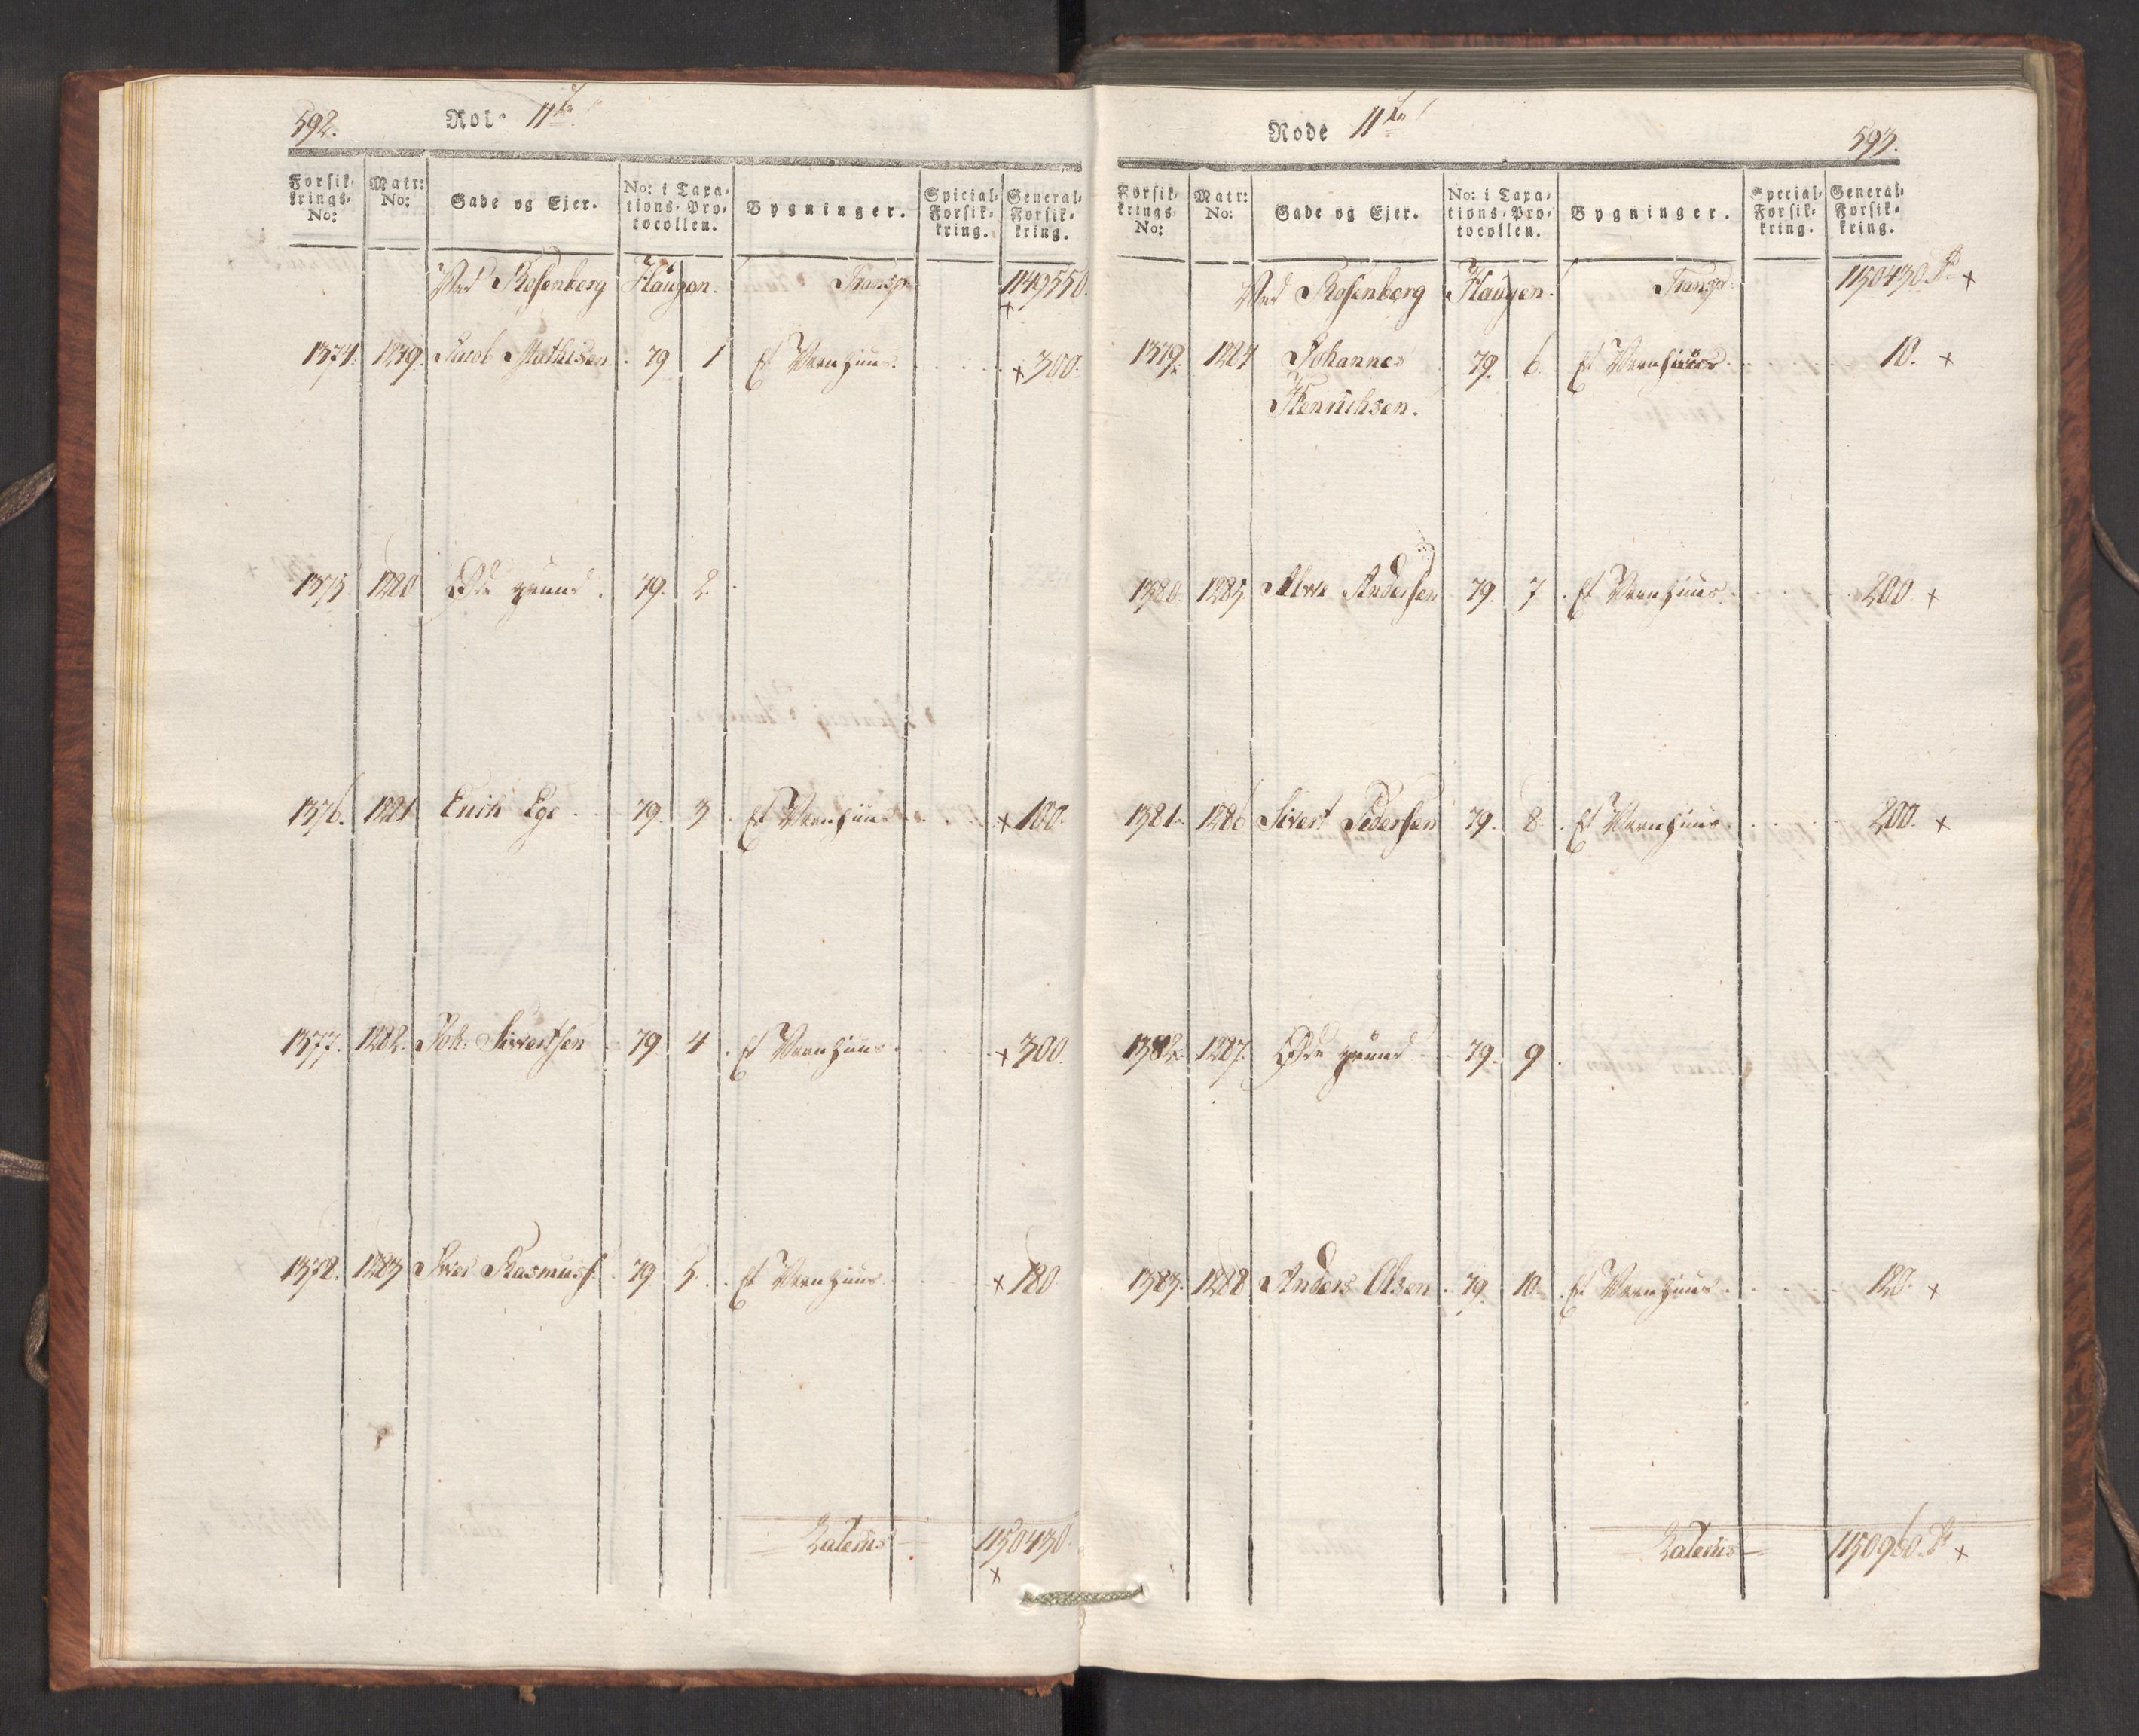 592. Rode 11te
Forsik- krings- No: Matr: No: Gade og Ejer. No: i Taxa- tions-Pro- tocollen. Bygninger. Special- Forsik- kring. General- Forsik- kring.
Ved Rosenberg Haugen. Transp. 1149550. x
1374. 1279. Jacob Mathisen 79 1 Et Vaanhuus x 300.
1375 1280 Øde grund. 79. 2.
1376. 1281 Erich Ege 79. 3 Et Vaanhuus x 100.
1377. 1282. Joh: Sivertsen 79 4 Et Vaanhuus x 300.
1378. 1283 Rasmuss. 79 5. Et Vaanhuus x 180
Laterus 1150430. x
Rode 11te 593.
Forsik- krings No: Matr: No: Gade og Ejer. No: i Taxa- tions-Pro- tocollen. Bygninger. Special- Forsik- kring. General- Forsik- kring.
Ved Rosenberg Haugen. Transp. 1150430. x
1379. 1284 Johannes 79. 6. Et Vaanhuus 10. x
Henrichsen.
1380 1285 Andersen 79. 7 Et Vaanhuus 200 x
1381. 1286 Sivert Pedersen 79. 8. Et Vaanhuus 200. x
1382. 1287. Øde grund 79. 9
1383. 1288 Anders Olsen. 79. 10. Et Vaanhuus 120. x
Laterus 1150960. x